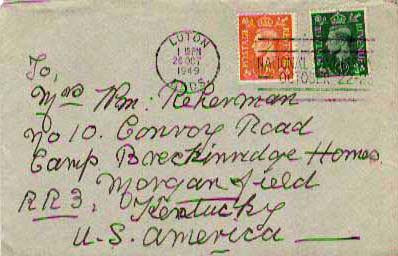 LUTON
1949
BEDS.
POSTAGE
POSTAGE
NATIONAL
OCTOBER 22
To,
Mrs Wm: Nekerman
No 10. Convoy Road
Camp Breckinridge Homes.
Morganfield
RR3, Kentucky
U.S. America